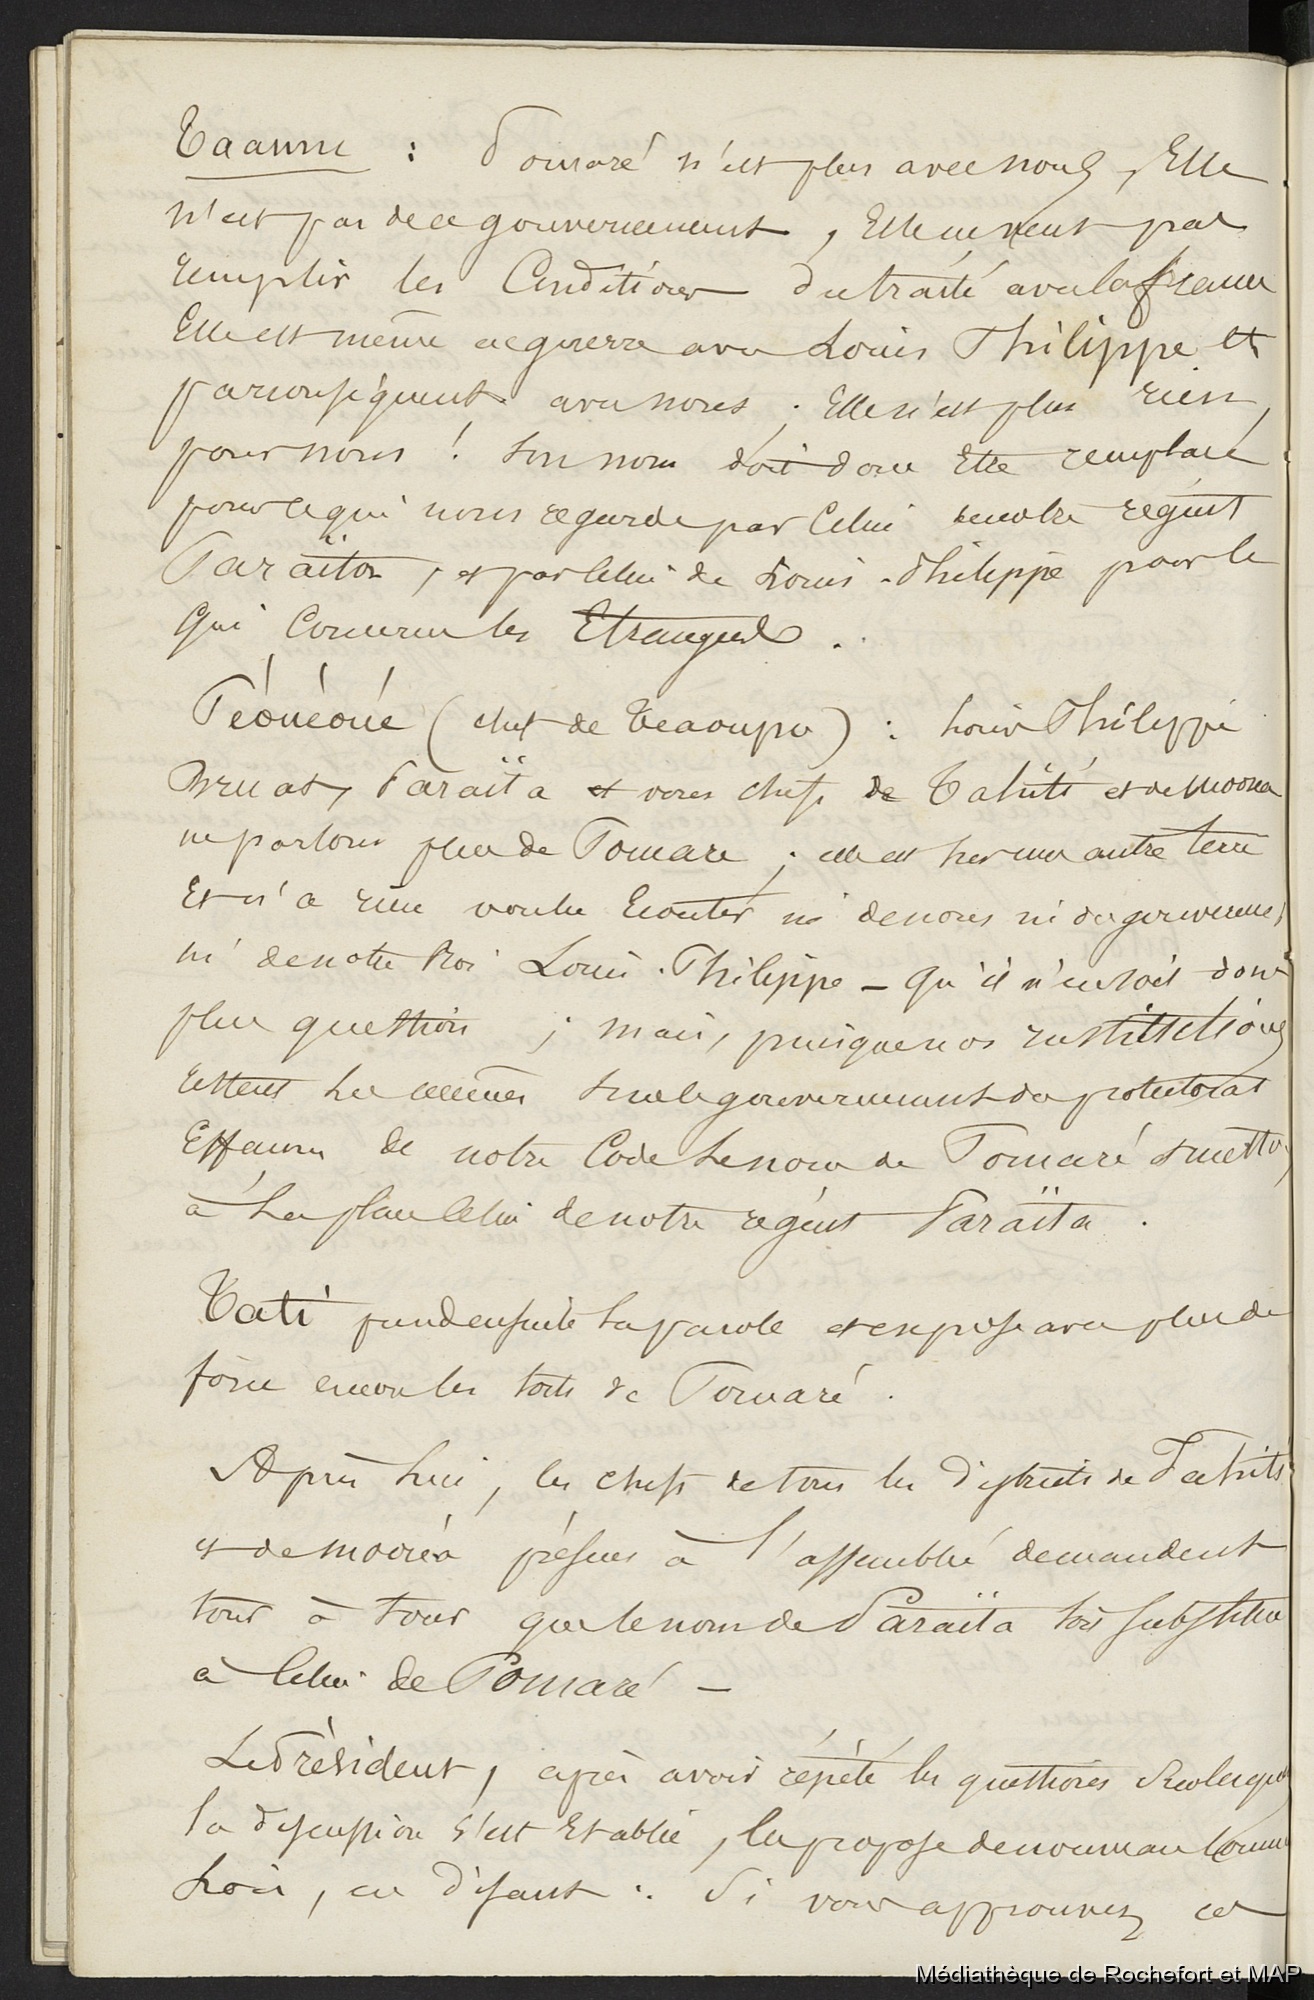 Taamu : Pomaré n'est plus avec nous, Elle
n'est pas de ce gouvernement, Elle ne veut pas
remplir les Conditions du traité avec la france
Elle est même en guerre avec Louis Philippe et
par conséquent avec nous ; Elle n'est plus rien
pour nous ! Son nom doit donc Etre remplacé
pour ce qui nous regarde par Celui de notre régent
Paraïta, et par Celui de Louis-Philippe pour le
qui Concerne les Etrangers.
Téouéoué (chef de Teaoupo) : Louis Philippe
Bruat, Paraïta et vous chefs de Tahiti et de Moorea
ne parlons plus de Pomare ; elle est sur une autre terre
Et n'a rien voulu Ecouter ni de nous ni du gouverneur,
ni de notre Roi Louis-Philippe - qu'il n'en soit donc
plus question ; mais, puisque nos institutions
restent les mêmes sous le gouvernement du protectorat
Effaçons de notre Code le nom de Pomaré et mettons
à la place Celui de notre régent Paraïta.
Tati prend ensuite la parole et expose avec plus de
force encore les torts de Pomaré.
Après lui, les chefs de tous les Districts de Tahiti
et de Mooréa présens à l'assemblée demandent
tour à tour que le nom de Paraïta soit substitué
à Celui de Pomaré -
Le Président, après avoir répété les questions sur lesquelles
la discussion s'est Etablie, les propose de nouveau Comme
Lois, en disant : Si vous approuvez cet
Médiathèque de Rochefort et MAP